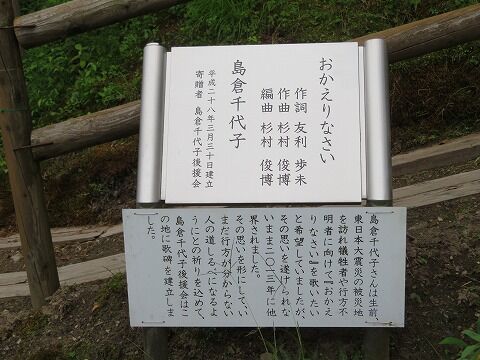 おかえりなさい
作詞 友利 歩未
作曲 杉村 俊博
編曲 杉村 俊博
島倉千代子
平成二十八年三月三十日建立
寄贈者 島倉千代子後援会
島倉千代子さんは生前、
東日本大震災の被災地
を訪れ犠牲者や行方不
明者に向けて『おかえ
りなさい』を歌いたい
と希望していましたが、
その思いを遂げられな
いまま二〇一三年に他
界されました。
その思いを形にして、い
まだ行方が分からない
人の道しるべになるよ
うにとの祈りを込めて、
島倉千代子後援会はこ
の地に歌碑を建立しま
した。